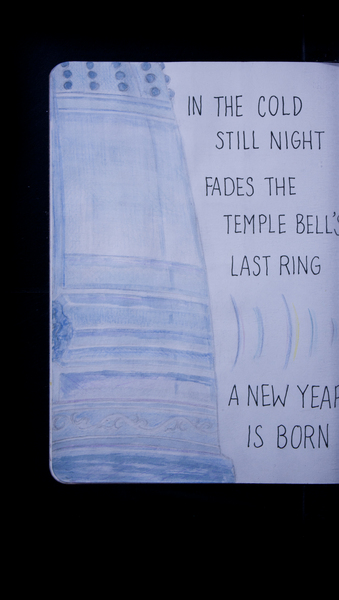 IN THE COLD
STILL NIGHT
FADES THE
TEMPLE BELL'S
LAST RING
A NEW YEAR
IS BORN